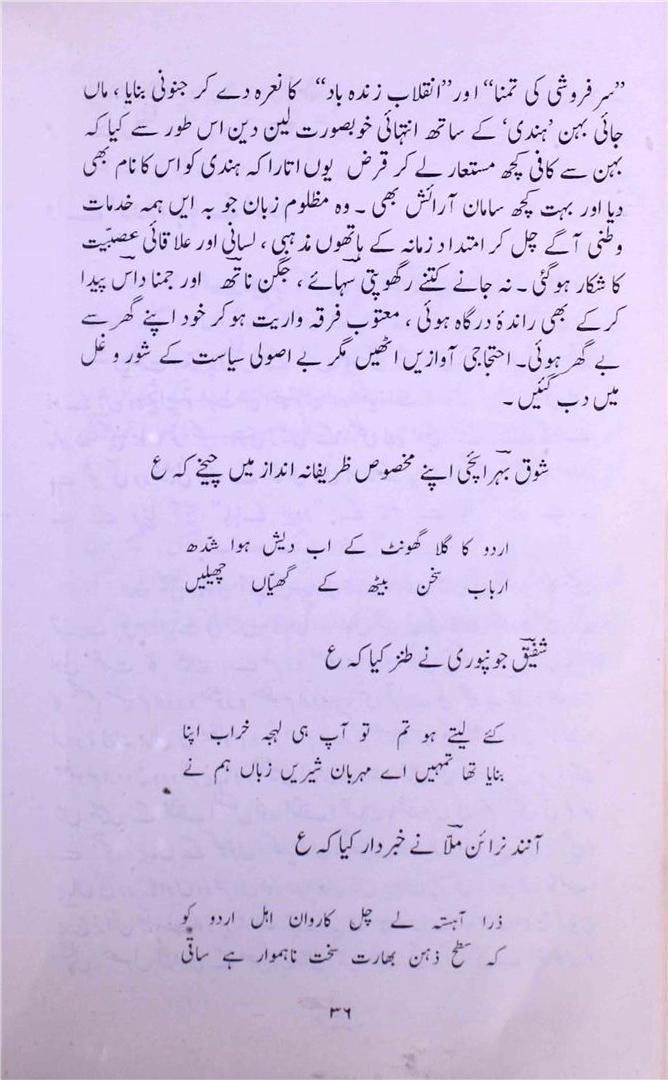 ”سر فروشی کی تمنا“ اور ”انقلاب زندہ باد“ کا نعرہ دے کر جنونی بنایا ، ماں
جائی بہن ’ہندی‘ کے ساتھ انتہائی خوبصورت لین دین اس طور سے کیا کہ
بہن سے کافی کچھ مستعار لے کر قرض یوں اتارا کہ ہندی کو اس کا نام بھی
دیا اور بہت کچھ سامان آرائش بھی ۔ وہ مظلوم زبان جو بہ ایں ہمہ خدمات
وطنی آگے چل کر امتداد زمانہ کے ہاتھوں مذہبی ، لسانی اور علاقائی عصبیّت
کا شکار ہوگئی ۔ نہ جانے کتنے رگھوپتی سہائے ، جگن ناتھ اور جمنا داس پیدا
کرکے بھی راندۂ درگاہ ہوئی ، معتوب فرقہ واریت ہوکر خود اپنے گھر سے
بے گھر ہوئی۔ احتجاجی آوازیں اٹھیں مگر بے اصولی سیاست کے شور و غل
میں دب گئیں ۔
شوق بہرائچی اپنے مخصوص ظریفانہ انداز میں چیخے کہ ع
اردو کا گلا گھونٹ کے اب دیش ہوا شدّھ
ارباب سخن بیٹھ کے گھیّاں چھیلیں
شفیق جونپوری نے طنز کیا کہ ع
کئے لیتے ہو تم تو آپ ہی لہجہ خراب اپنا
بنایا تھا تمہیں اے مہربان شیریں زباں ہم نے
آنند نرائن ملّا نے خبردار کیا کہ ع
ذرا آہستہ لے چل کاروان اہل اردو کو
کہ سطح ذہن بھارت سخت ناہموار ہے ساقی
۳۶